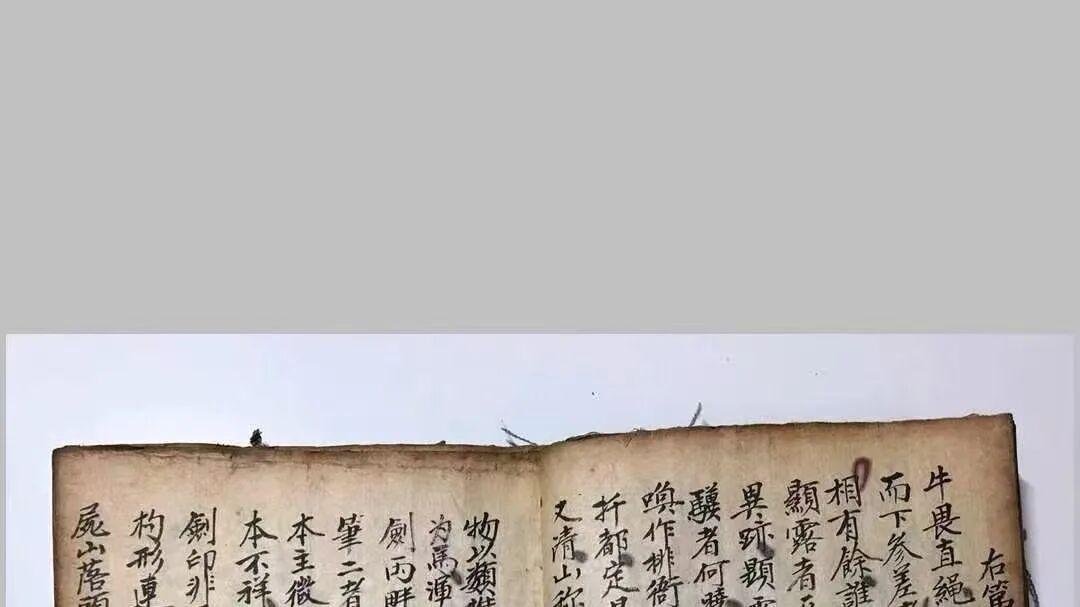 右第
牛畏直繩
而下參差
相有餘誰
顯露者
異跡顯露
驥者何
喚作排衙
扦都定是
又清山称
物以類推
为馬渾
劍丙畔
筆二者
本主微
本不祥
劍印非
枸形連
屍山落頭